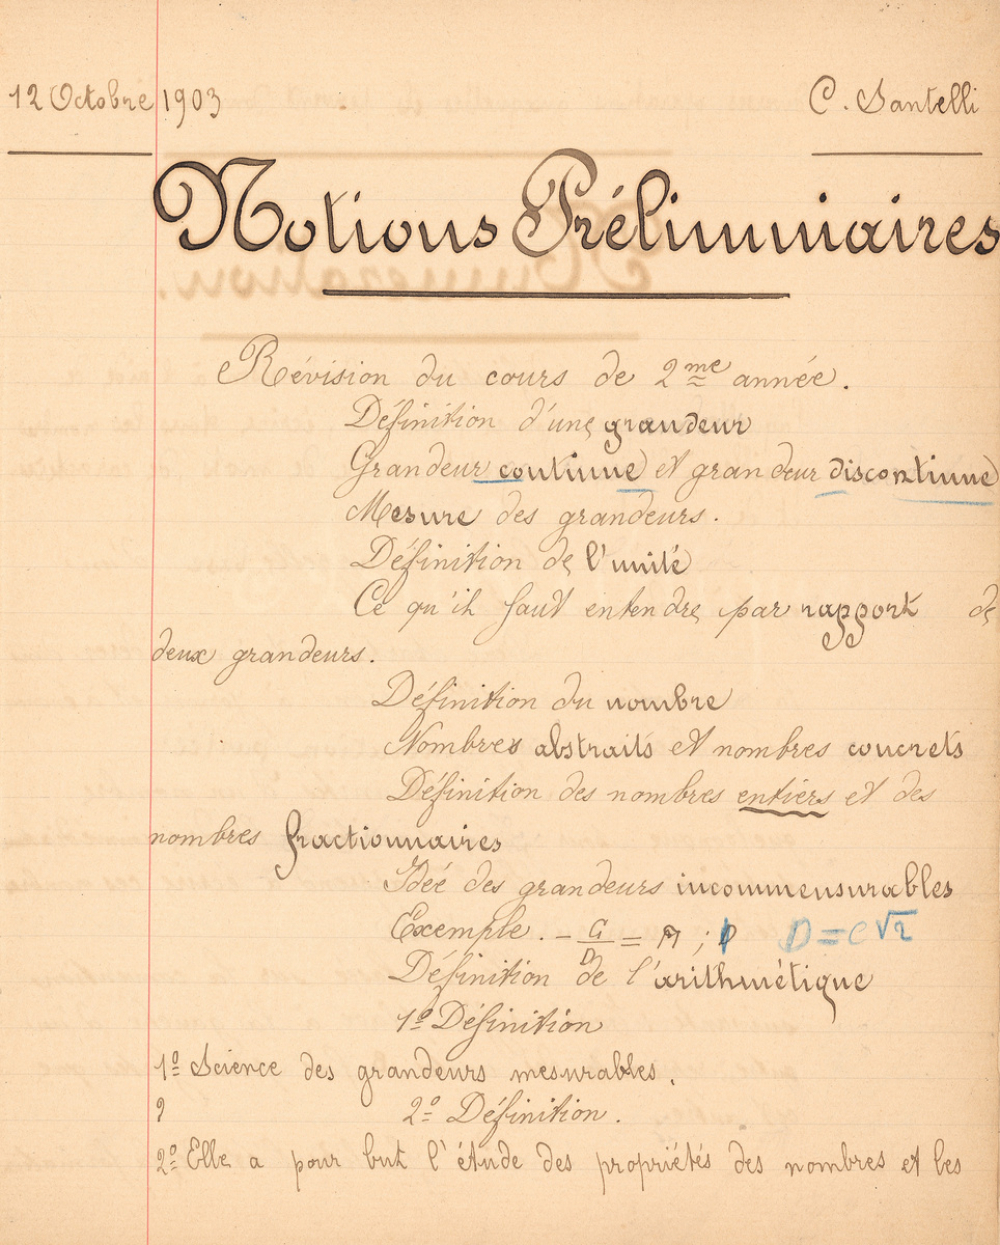 12 Octobre 1903 C. Santelli
Notions Préliminaires
Révision du cours de 2me année.
Définition d'une grandeur
Grandeur continue et grandeur discontinue
Mesure des grandeurs.
Définition de l'unité
Ce qu'il faut entendre par rapport de
deux grandeurs.
Définition du nombre
Nombres abstraits et nombres concrets
Définition des nombres entiers et des
nombres fractionnaires
Idée des grandeurs incommensurables
Exemple. - C/D = π ; D = C√2
Définition de l'arithmétique
1º Définition
1º Science des grandeurs mesurables.
? 2º Définition.
2º Elle a pour but l'étude des propriétés des nombres et les